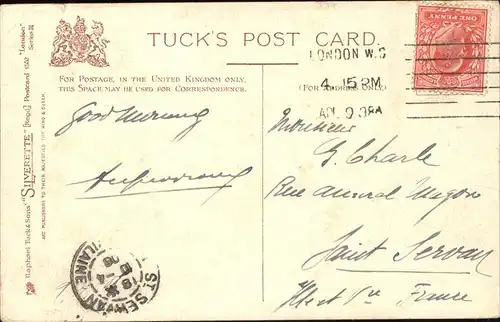 TUCK'S POST CARD.
FOR POSTAGE, IN THE UNITED KINGDOM ONLY,
THIS SPACE MAY BE USED FOR CORRESPONDENCE.
(FOR ADDRESS ONLY)
LONDON W.C
4. 15 PM
ONE PENNY
Good Morning
Monsieur
G. Charle
Rue
Saint Servan
Ille et
France
ST SERVAN
ILAINE
Raphael Tuck & Sons' "SILVERETTE" [Regd.] Postcard 1552 "London" Series II
ART PUBLISHERS TO THEIR MAJESTIES THE KING & QUEEN.